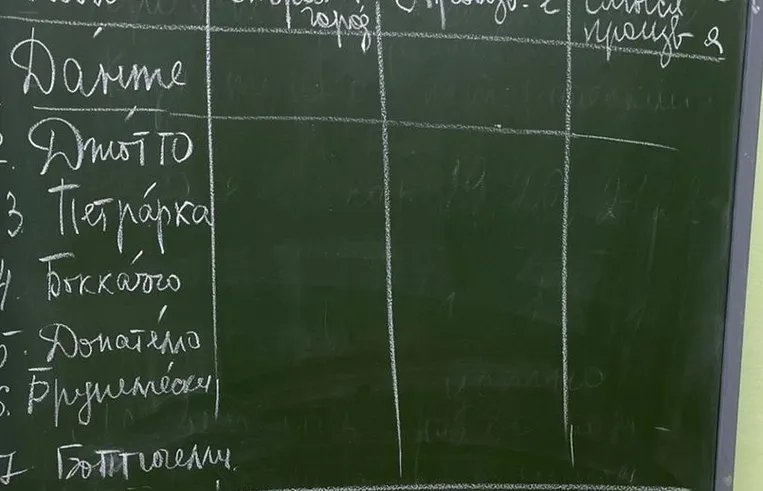 город
смысл
произв-я
Да́нте
2. Джо́тто
3 Петра́рка
4. Бокка́чо
5. Донате́лло
6. Брунелле́ски
7 Боттичелли